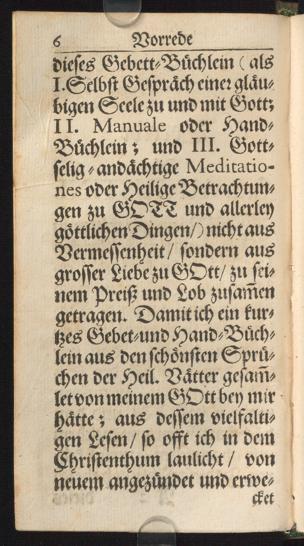 6 Vorrede
dieses Gebett-Büchlein (als
I. Selbst Gespräch einer gläu-
bigen Seele zu und mit Gott;
II. Manuale oder Hand-
Büchlein; und III. Gott-
selig-andächtige Meditatio-
nes oder Heilige Betrachtun-
gen zu GOTT und allerley
göttlichen Dingen/) nicht aus
Vermessenheit/ sondern aus
grosser Liebe zu GOtt/ zu sei-
nem Preiß und Lob zusam̄en
getragen. Damit ich ein kur-
tzes Gebet-und Hand-Büch-
lein aus den schönsten Sprü-
chen der Heil. Vätter gesam̄-
let von meinem GOtt bey mir
hätte; aus dessem vielfalti-
gen Lesen/ so offt ich in dem
Christenthum laulicht/ von
neuem angezündet und erwe-
cket